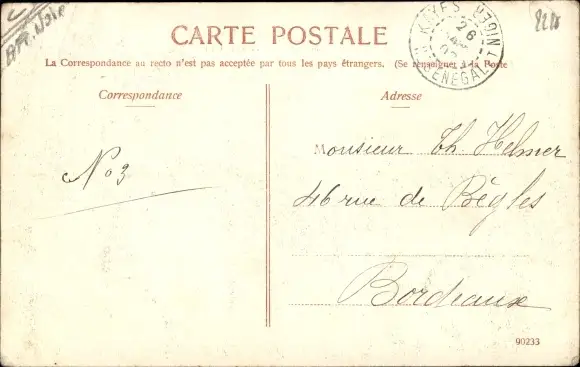 Afr. Noire
CARTE POSTALE
La Correspondance au recto n'est pas acceptée par tous les pays étrangers. (Se renseigner à la Poste
Correspondance
Adresse
KAYES MEDINE
26
HT SENEGAL NIGER
No 3
Monsieur Th. Helmer
46 rue de Bègles
Bordeaux
90233